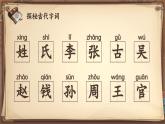 探秘古代字词
xìng shì lǐ zhāng gǔ wú
姓 氏 李 张 古 吴
zhào qián sūn zhōu wáng guān
赵 钱 孙 周 王 官